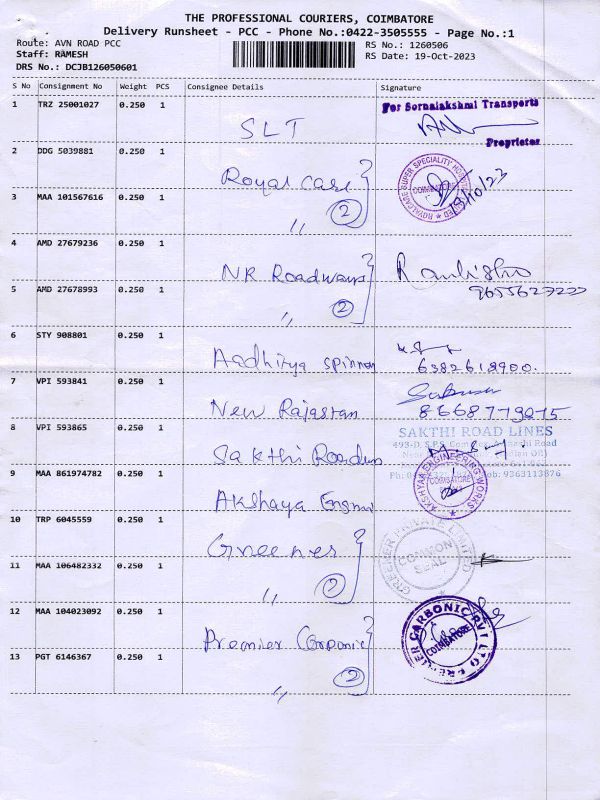 THE PROFESSIONAL COURIERS, COIMBATORE
Delivery Runsheet - PCC - Phone No.:0422-3505555 - Page No.:1
Route: AVN ROAD PCC
RS No.: 1260506
Staff: RAMESH
RS Date: 19-Oct-2023
DRS No.: DCJB126050601
S No Consignment No Weight PCS Consignee Details Signature
1 TRZ 25001027 0.250 1 SLT
For Sornalakshmi Transports
Proprietor
2 DDG 5039881 0.250 1 Royal Case
ROYALCASE SUPER SPECIALITY COIMBATORE
19/10/23
3 MAA 101567616 0.250 1 〃 2
4 AMD 27679236 0.250 1 NR Roadways
5 AMD 27678993 0.250 1 〃 2
6 STY 908801 0.250 1 Aadhitya spinner
6382618900.
7 VPI 593841 0.250 1 New Rajastan
8668779015
8 VPI 593865 0.250 1 Sakthi Roadlines
SAKTHI ROAD LINES
493-D, S.P.S. Road
9363113876
9 MAA 861974782 0.250 1 Akshaya
AKSHYAA ENGINEERING WORKS COIMBATORE
10 TRP 6045559 0.250 1 Greenes
PRIVATE LIMITED COMMON SEAL
11 MAA 106482332 0.250 1 〃 2
12 MAA 104023092 0.250 1 Premier
CARBONIC PVT LTD COIMBATORE
13 PGT 6146367 0.250 1 〃 2